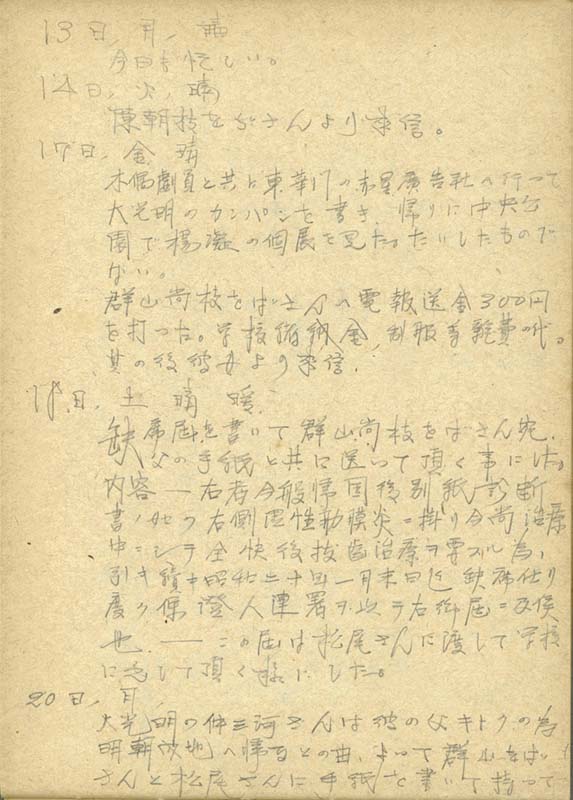 13日, 月, 晴
今日も忙しい。
14日, 火, 晴
陳朝枝をばさんより来信。
17日, 金 晴
木偶劇員と共に東華門の赤星廣告社へ行って
大光明のカンバンを書き, 帰りに中央公
園で楊凝の個展を見た。たいしたもので
ない。
群山尚枝をばさんへ電報送金300円
を打った。学校 納金, 制服等雑費の代。
其の後彼女より来信.
18日, 土 晴 暖.
缺席届を書いて群山尚枝をばさん宛.
父の手紙と共に送って頂く事にした。
内容 — 右者今般帰国後別紙診断
書ノ如ク右側湿性肋膜炎ニ掛リ今尚治療
中ニシテ全快後抜歯治療ヲ要スル為,
引キ續キ昭和二十年一月末日迄缺席仕り
度ク保證人連署ヲ以テ右御届ニ及候
也. — この届は松尾さんに渡して学校
に して頂く様にした。
20日, 月,
大光明の仲三河さんは彼の父キトクの為
明朝 地へ帰るとの由, よって群山をば
さんと松尾さんに手紙を書いて持って